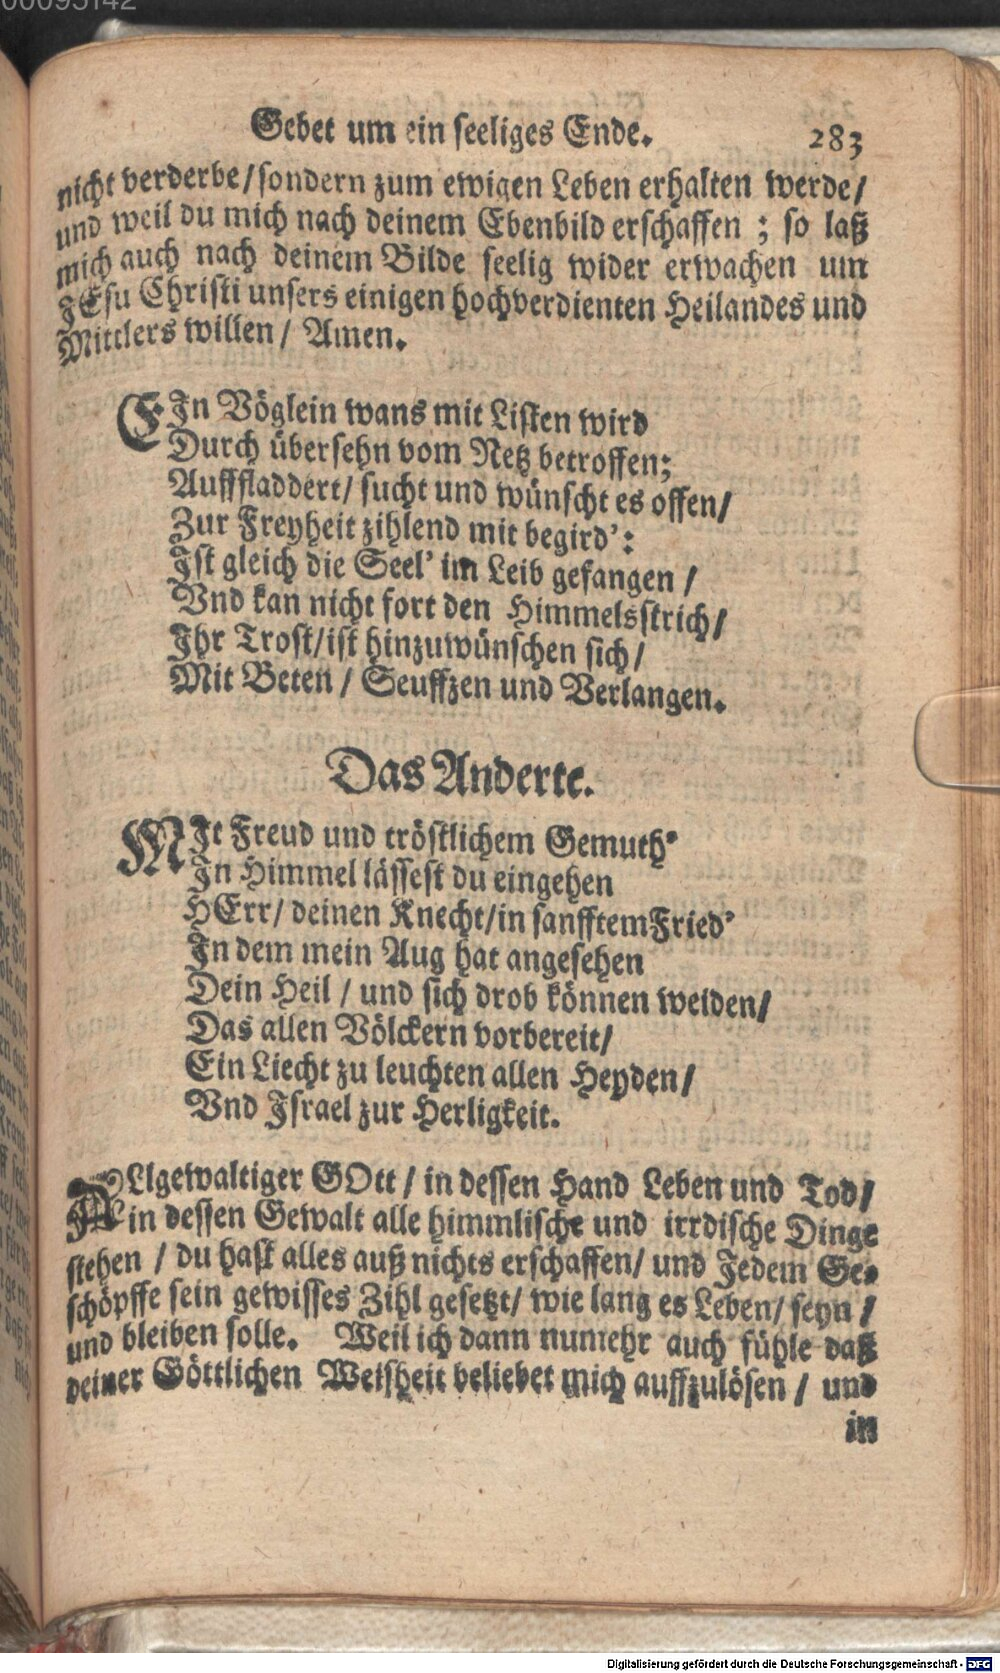 00095142
Gebet um ein seeliges Ende. 283
nicht verderbe/sondern zum ewigen Leben erhalten werde/
und weil du mich nach deinem Ebenbild erschaffen ; so laß
mich auch nach deinem Bilde seelig wider erwachen um
JEsu Christi unsers einigen hochverdienten Heilandes und
Mittlers willen / Amen.
EJn Vöglein wans mit Listen wird
Durch übersehn vom Netz betroffen;
Auffladdert/ sucht und wünscht es offen/
Zur Freyheit zihlend mit begird':
Jst gleich die Seel' im Leib gefangen /
Vnd kan nicht fort den Himmelsstrich/
Jhr Trost/ist hinzuwünschen sich/
Mit Beten / Seuffzen und Verlangen.
Das Anderte.
MJt Freud und tröstlichem Gemuth'
Jn Himmel lässest du eingehen
HErr/ deinen Knecht/in sanfftem Fried'
Jn dem mein Aug hat angesehen
Dein Heil / und sich drob können weiden/
Das allen Völckern vorbereit/
Ein Liecht zu leuchten allen Heyden/
Vnd Jsrael zur Herligkeit.
ALlgewaltiger GOtt / in dessen Hand Leben und Tod/
in dessen Gewalt alle himmlische und irrdische Dinge
stehen / du hast alles auß nichts erschaffen/ und Jedem Ge-
schöpffe sein gewisses Zihl gesetzt/ wie lang es Leben/ seyn /
und bleiben solle. Weil ich dann numehr auch fühle daß
deiner Göttlichen Weisheit beliebet mich auffzulösen / und
in
Digitalisierung gefördert durch die Deutsche Forschungsgemeinschaft - DFG